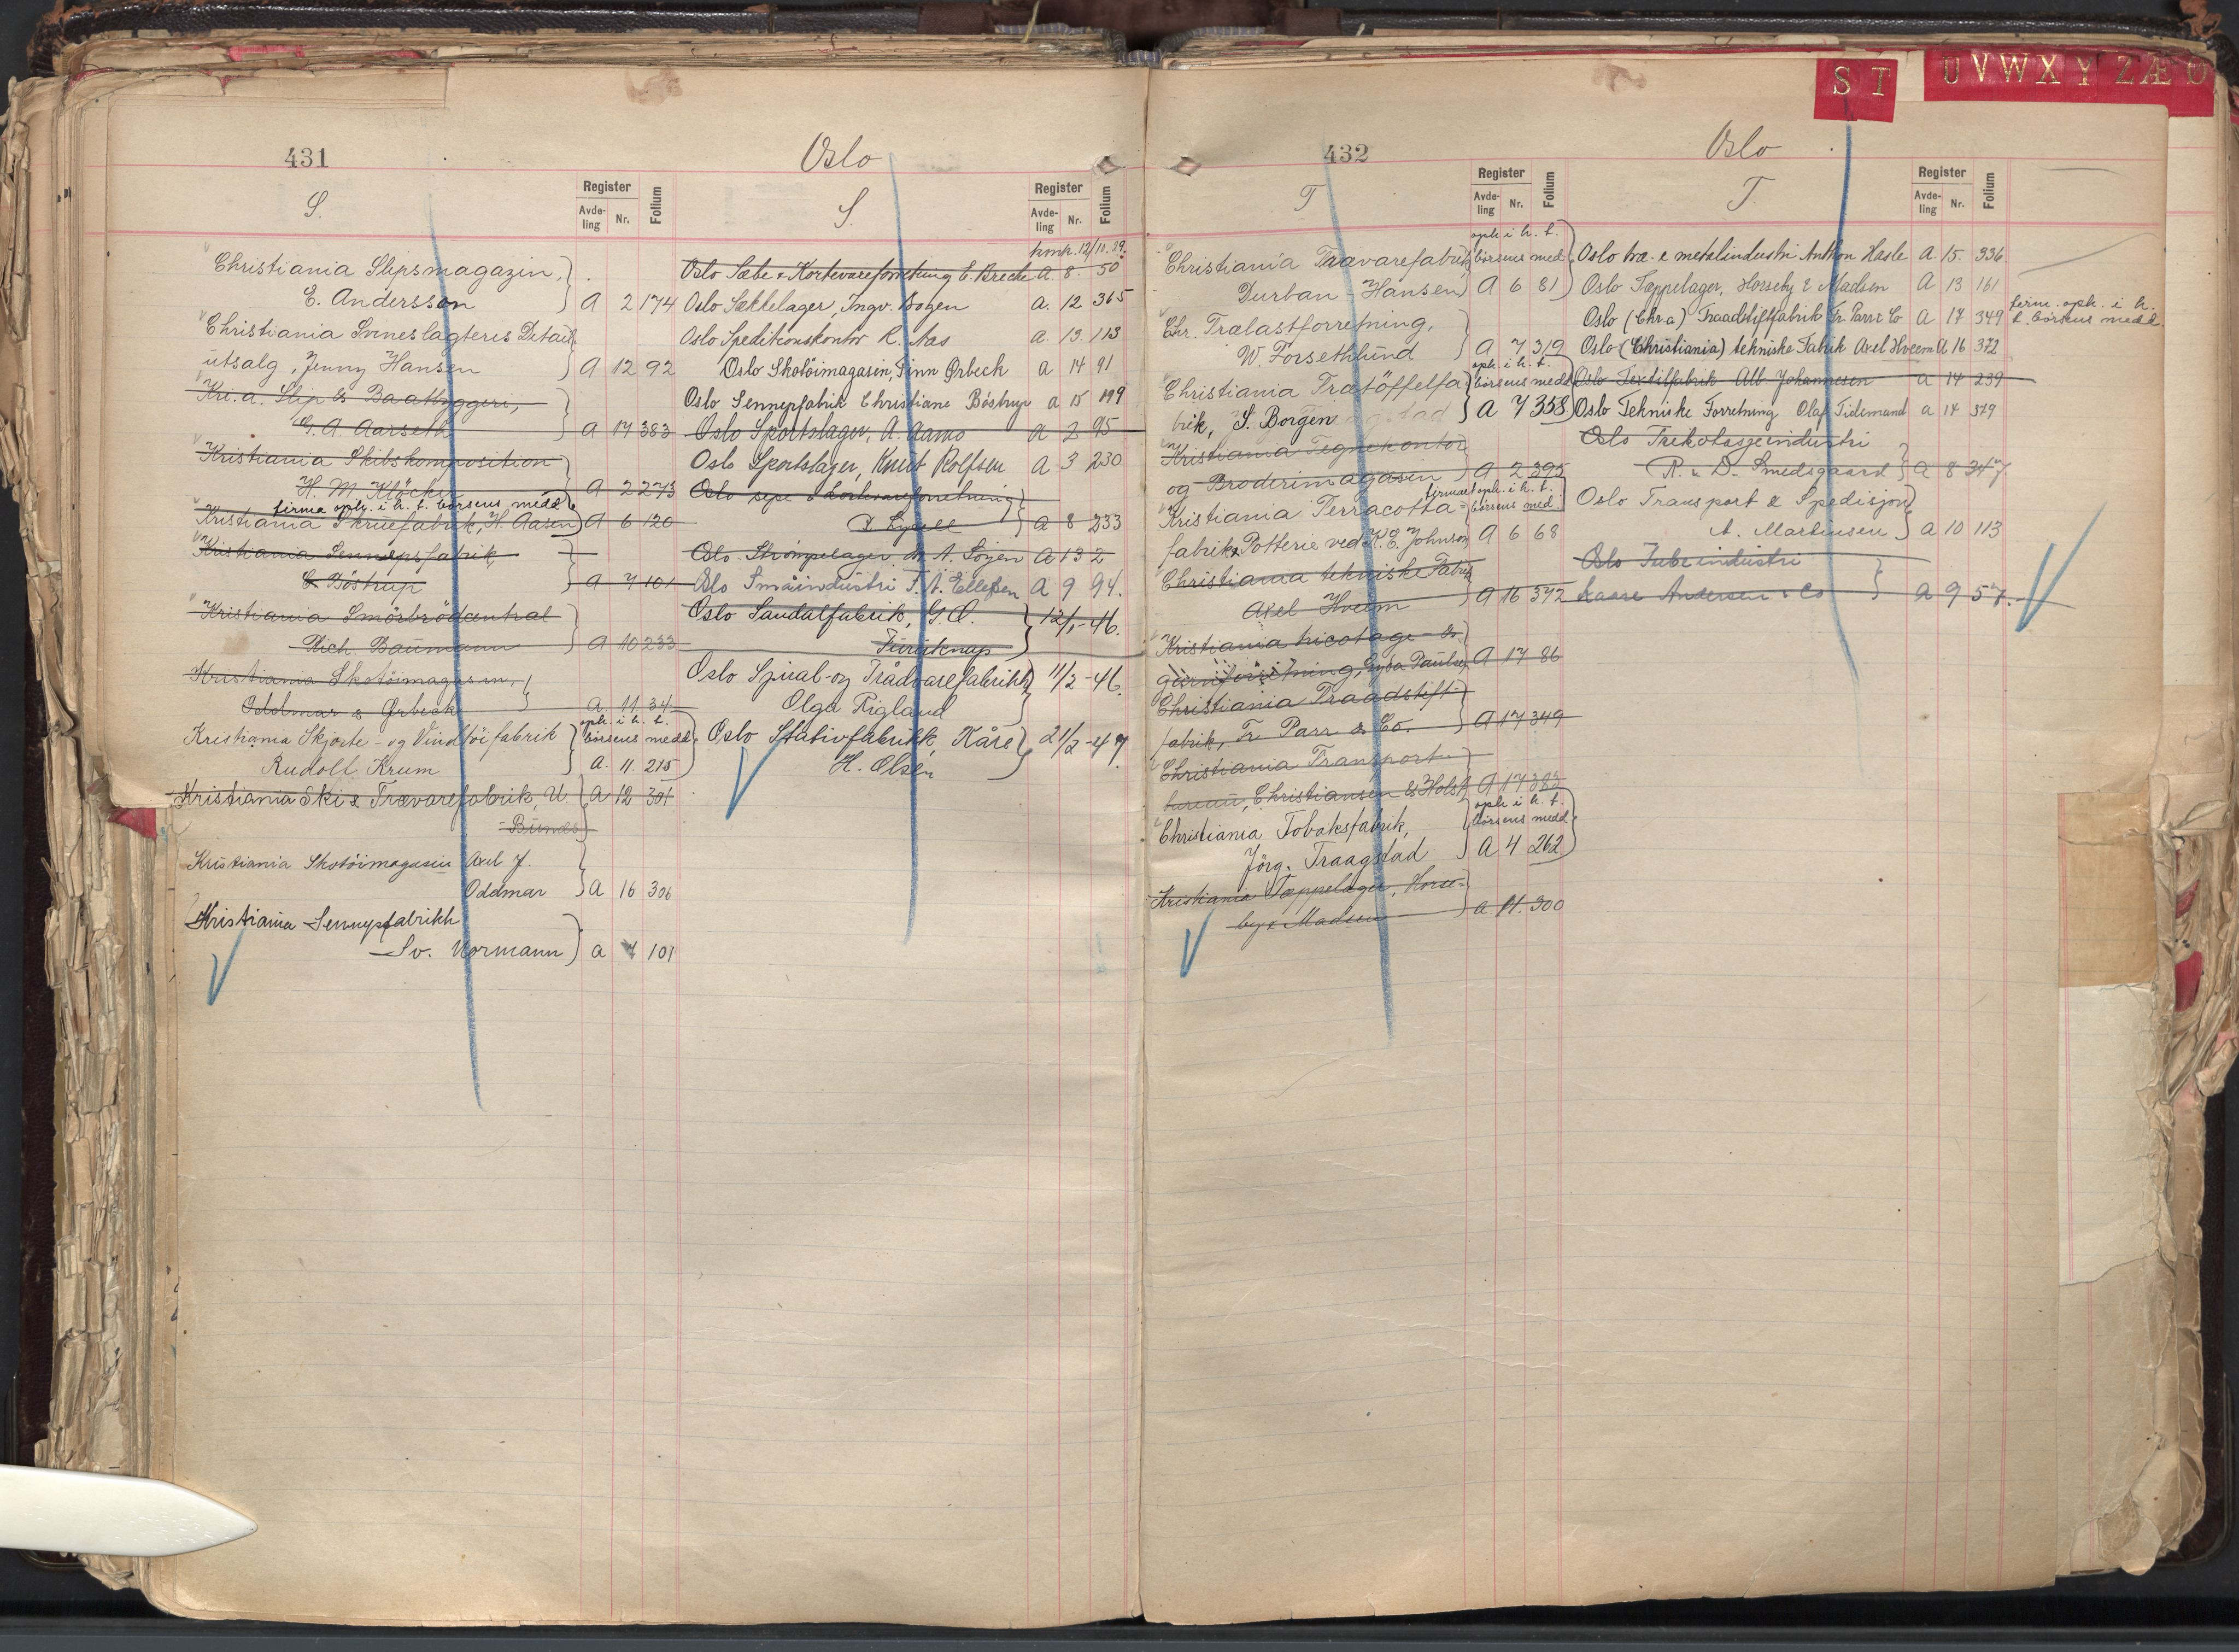 S T U V W X Y Z Æ Ø
431
Oslo
S.
Register
Avde-
ling
Nr.
Folium
Christiania Slipsmagazin,
E. Andersson A 2 174
Christiania Svineslagteres Detail
utsalg, Jenny Hansen A 12 92
Kri.a. Slip & Baatbyggeri,
G. A. Aarseth A 17 383
Kristiania Skibskomposition
H. M. Klöcker A 2 273
firma oph. i h. t. börsens medd.
Kristiania Skruefabrik, H. Aasen A 6 120
Kristiania Sennepsfabrik
C. Böstrup A 7 101
Kristiania Smörbrödcentral
Rich. Baumann A 10 233
Kristiania Skotöimagasin,
Oddmar & Ørbeck A. 11. 34
Kristiania Skjorte- og Vindtöifabrik oph. i h. t. börsens medd.
Rudolf Krum A. 11. 215
Kristiania Ski & Trævarefabrik, U. A 12 301
Bunds
Kristiania Skotöimagasin Axel J.
Oddmar A 16 306
Kristiania Sennepsfabrikk
Sv. Normann a 7 101
S.
Register
Avde-
ling
Nr.
Folium
konk. 12/11.29.
Oslo Sæbe & Kortevareforretning E. Brecke A. 8. 50
Oslo Sækkelager, Ingv. Bogen a. 12 365
Oslo Speditionskontor R. Aas a. 13. 113
Oslo Skotöimagasin, Finn Ørbeck a 14 91
Oslo Sennepfabrik Christiane Böstrup a 15 199
Oslo Sportslager, A. Aamo a 2 95
Oslo Sportslager, Knut Rolfsen A 3 230
Oslo sepe & Kortevareforretning
A 8 233
Oslo Strømpelager A 13 2
Oslo Småindustri T. A. Ellefsen A 9 94.
Oslo Sandalfabrik, G. O.
Furuknap 12/1-46.
Oslo Spiral- og Trådvarefabrikk
Olga Rigland 11/2-46.
Oslo Stativfabrikk, Kåre
H. Olsen 21/2-47
432
Oslo
T
Register
Avde-
ling
Nr.
Folium
oph. i h. t.
Christiania Trævarefabrik börsens medd.
Durban-Hansen A 6 81
Chr. Trælastforretning,
W. Forsethlund A 7 319
oph. i h. t.
Christiania Trætöffelfa börsens medd.
brik, S. Borgen A 7 358
Kristiania Tegnekontor
og Broderimagasin A 2 395
firmaet oph. i h. t.
Kristiania Terracotta= börsens medd.
fabrik & Potterie ved K. E. Johnson A 6 68
Christiania tekniske Fabrik
Axel Hveem A 16 372
Kristiania tricotage- &
garnforretning, Gyda Paulsen A 17 86
Christiania Traadstift-
fabrik, Fr. Parr & Co. A 17 349
Christiania Transport-
bureau, Christiansen & Holst A 17 383
oph. i h. t.
Christiania Tobaksfabrik, börsens medd.
Jörg. Traagstad A 4 262
Kristiania Tæppelager, Horse=
by & Madsen a. 11. 300
T.
Register
Avde-
ling
Nr.
Folium
Oslo træ- & metalindustri Anthon Hasle A 15. 336
Oslo Tæppelager, Horseby & Madsen A 13 161
Oslo (Chr.a) Traadstiftfabrik Fr. Parr & Co A 17 349 firm. oph. i h.
t. börsens medd.
Oslo (Christiania) tekniske Fabrik Axel Hveem A 16 372
Oslo Textilfabrik Alb Johannesen a 14 239
Oslo Tekniske Forretning Olaf Tidemand a 17 379
Oslo Trikotasjeindustri
R. & D. Smedsgaard A 8 347
Oslo Transport & Spedisjon
A. Martinsen A 10 113
Oslo Tubeindustri
Kaare Andersen & Co A 9 57.